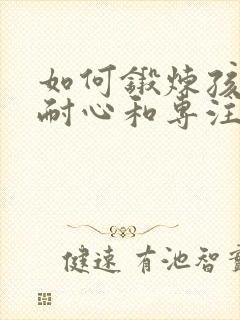 如何鍛煉孩
耐心和專注
健速 有池智